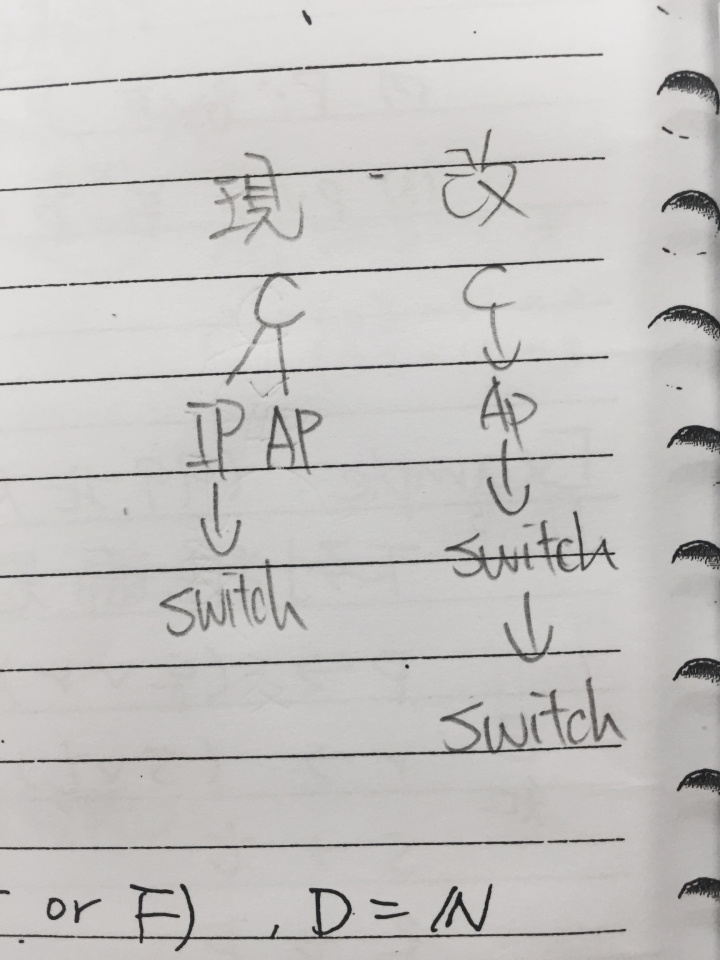 現 - 改
C C
IP AP Ap
switch switch
switch
or F) , D = ℕ